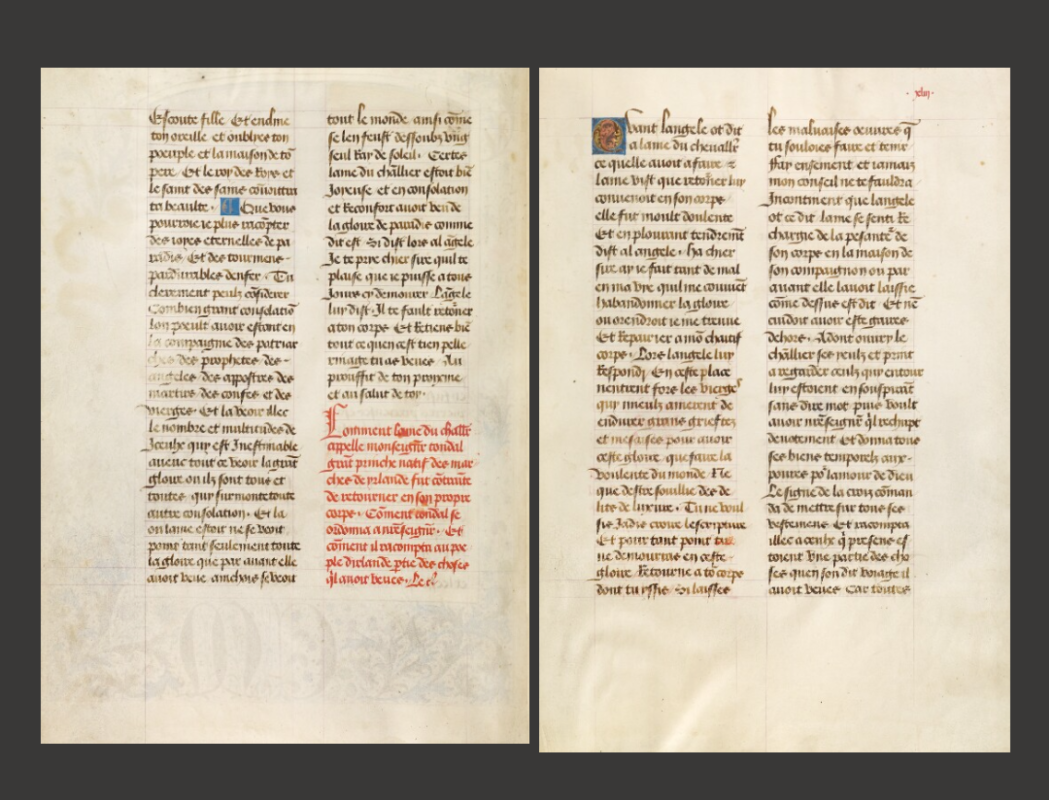 Escoute fille Et encline
ton oreille et oublies ton
poeuple et la maison de tõ
pere Et le roy des Roys et
le saint des sains cõuoittra
ta beaulte · Que vous
pourroie ie plus racõpter
des ioyes eternelles de pa
radis Et des tourmens
pardurables denfer · Tu
clerement peulz cõsiderer
Combien grant consolatiõ
lon poeult auoir estant en
la compaignie des patriar
ches des prophetes des
angeles des appostres des
martirs des confes et des
vierges · Et la veoir illec
le nombre et multitudes de
Iceulx quy est Inestimable
auecq tout ce veoir la grãt
gloire ou ilz sont tous et
toutes quy surmonte toute
autre consolation · Et la
on lame estoit ne se veoit
point tant seulement toute
la gloire que par auant elle
auoit veue ainchois se veoit
tout le monde ainsi cõme
se len feust dessoubz vng
seul Ray de soleil · Certes
lame du chl̃lier estoit biẽ
Joyeuse et en consolation
et Reconfort auoit veu de
la gloire de paradis comme
dit est Si dist lors al ãgele
Je te prye chier sire quil te
plaise que ie puisse a tous
Jours cy demourer Lãgele
luy dist · Il te fault retõner
a ton corps Et Retiens biẽ
tout ce quen cest tien pelle
rinage tu as veues · Au
prouffit de ton proxisme
et au salut de toy ·
Comment lame du chl̃lr
appelle monseignr̃ tondal
grãt prinche natif des mar
ches de yrlande fut cõtraite
de retourner en son propre
corps · Cõment tondal se
ordonna a nr̃eseignr̃ · Et
cõment il racompta au poe
ple dirlande p̃tie des choses
q̃l auoit veues ·
xliii
Quant langele ot dit
a lame du chevallr̃
ce quelle auoit a faire ⁊
lame vist que retõrner luy
conuenoit en son corps
elle fut moult doulente
Et en plourant tendremt̃
dist al angele · ha chier
sire ay ie fait tant de mal
en ma vye quil me conuiẽt
habandonner la gloire
ou orendroit ie me treuue
Et Repairier a mõ chaitif
corps · Lors langele luy
Respondi En ceste place
nentrent fors les vierges
quy mieulx amerent de
endurer grans grieftez
et mesaises pour auoir
ceste gloire que faire la
voulente du monde Ne
que destre souillie des de
lits de luxure · Tu ne voul
sis Jadis croire lescripture
Et pour tant point tu
ne demourras en ceste
gloire Retourne a tõ corps
dont tu yssis Si laisses
les malvaises oeuures q̃
tu souloies faire et teme
Ray ensement et iamais
mon conseil ne te fauldra
Incontinent que langele
ot ce dit lame se senti Re
chargie de la pesanter̃ de
son corps en la maison de
son compaignon ou par
auant elle lauoit laissie
cõme dessus est dit · Et nẽ
cuidoit auoir este gaires
dehors · Adont ouury le
chl̃lier ses yeulx et print
a regarder ceulx quy entour
luy estoient en souspirãt
sans dire mot puis voult
auoir nr̃eseignr̃ q̃l rechupt
deuotement Et donna tous
ses biens temporelz aux
poures po᷑ lamour de dieu
Le signe de la croix cõman
da de mettre sur tous ses
vestemens Et racompta
illec a ceulx q̃ presens es
toient vne partie des cho
ses quen son dit voiage il
auoit veues Car toutes